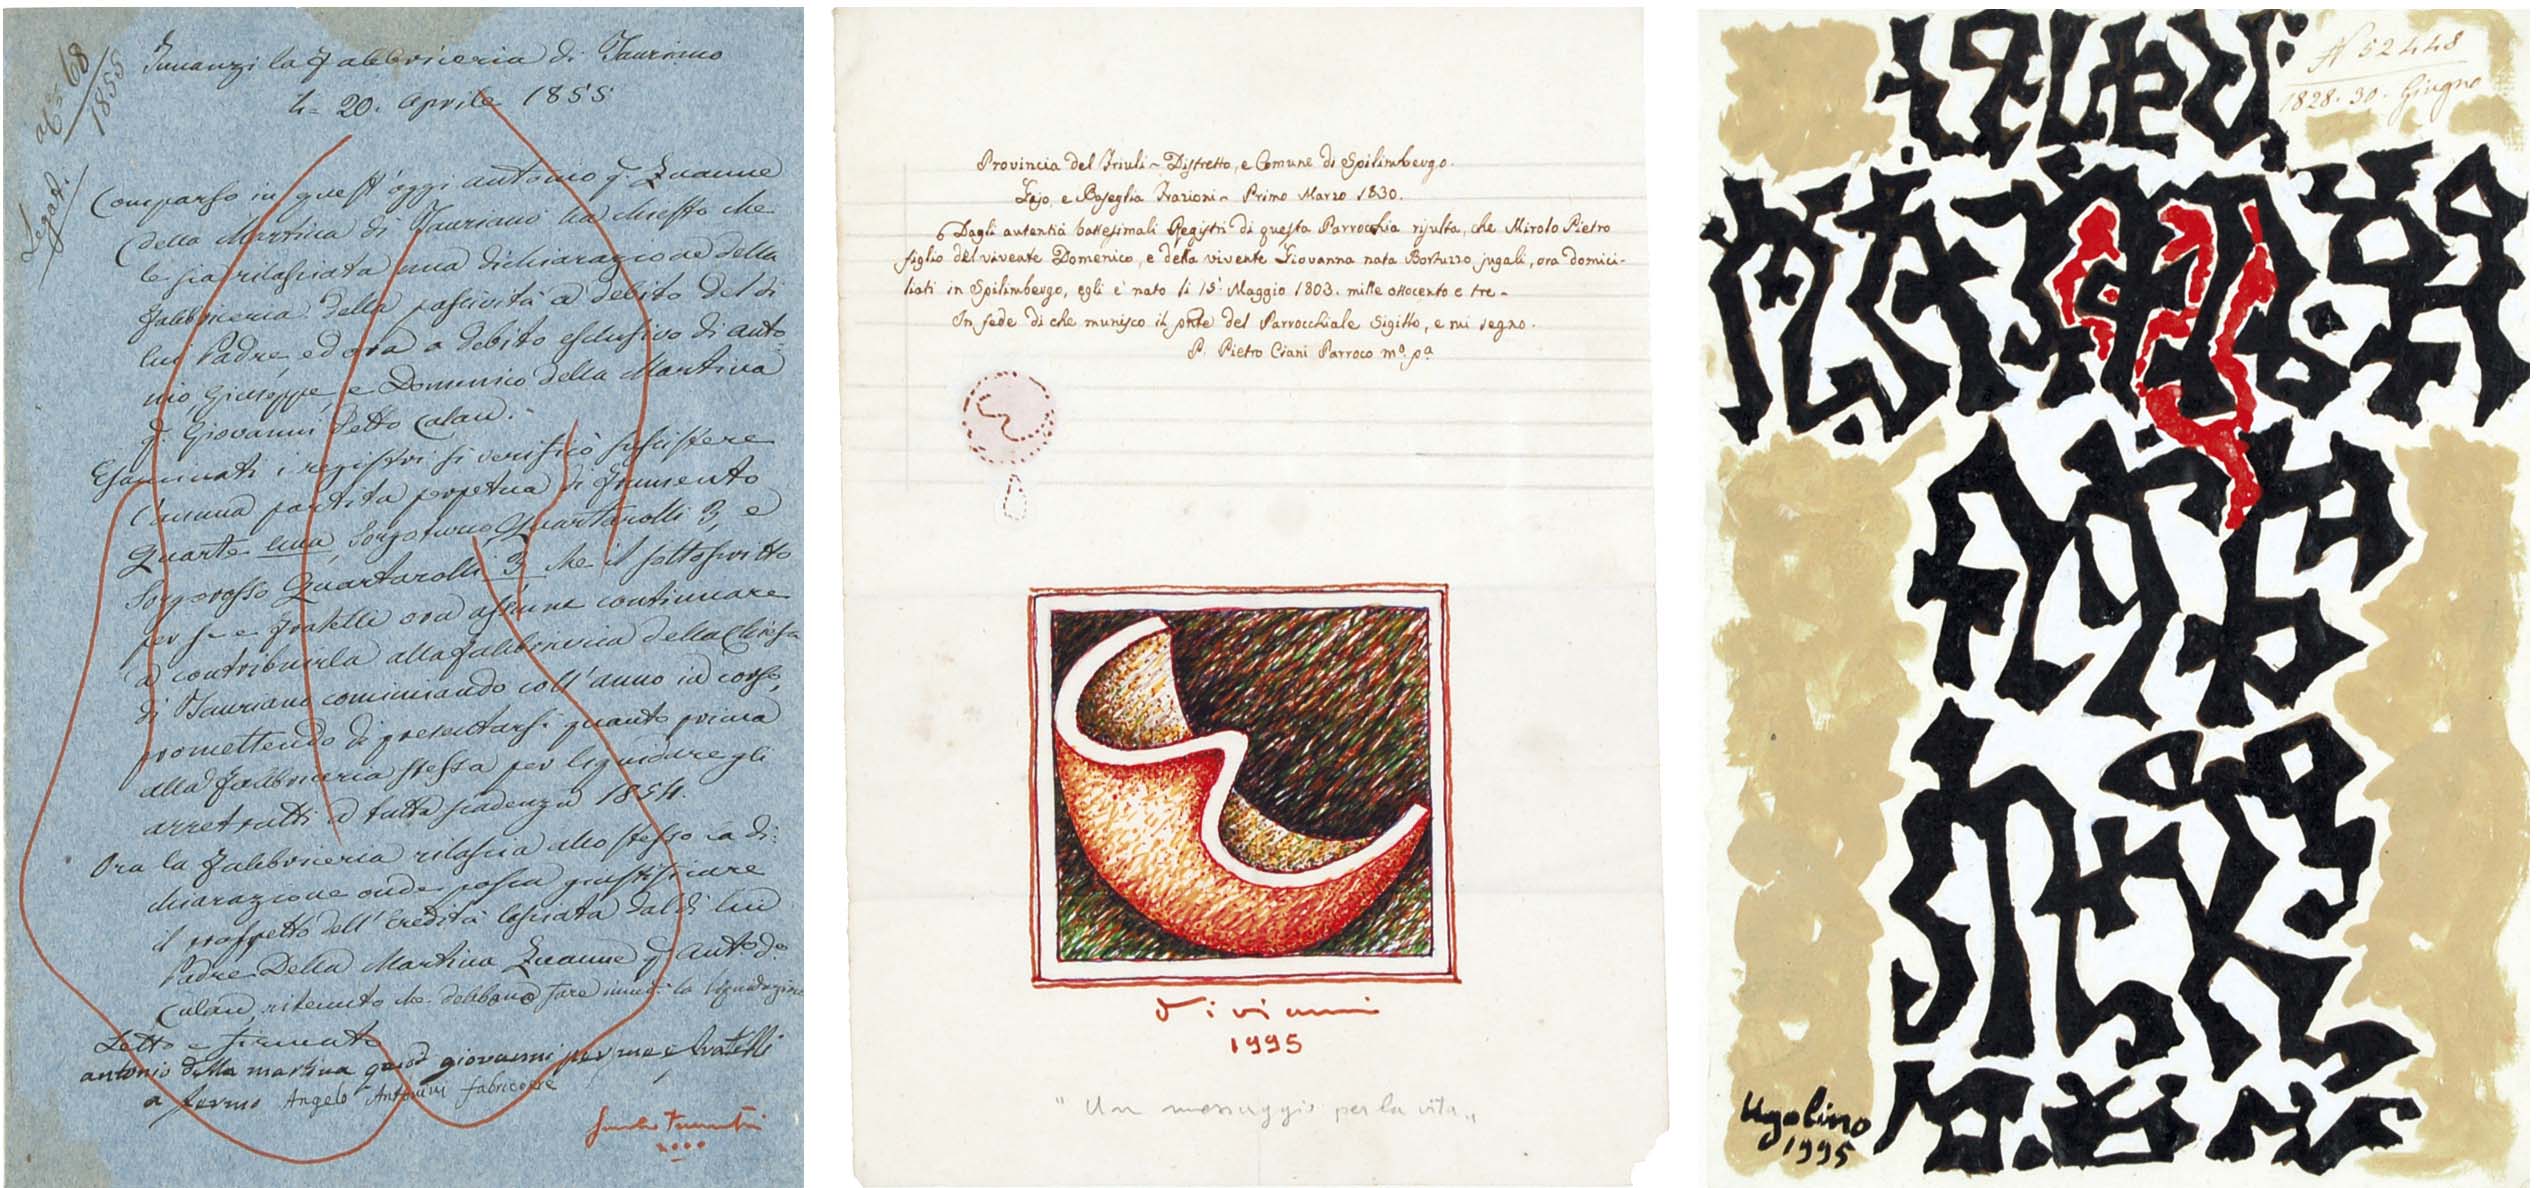 N° 68
1855
Legat.
Innanzi la Fabbriceria di Tauriano
li 20. Aprile 1855
Comparso in quest'oggi Antonio q. Zuanne
della Martina di Tauriano ha chiesto che
le sia rilasciata una dichiarazione della
Fabbriceria della passività a debito del di
lui Padre, ed ora a debito esclusivo di Anto-
nio, Giuseppe, e Domenico della Martina
q. Giovanni detto Calan.
Esaminati i registri si verificò sussistere
l'annua partita perpetua di Frumento
Quarte una, Sorgoturco Quartarolli 3, e
Sorgorosso Quartarolli 3 che il sottoscritto
per se e Fratelli ora assume continuare
a contribuirla alla Fabbriceria della Chiesa
di Tauriano cominciando coll'anno in corso,
promettendo di presentarsi quanto prima
alla Fabbriceria stessa per liquidare gli
arretratti a tutta scadenza 1854.
Ora la Fabbriceria rilascia allo stesso la di-
chiarazione onde possa giustificare
il prospetto dell'Eredità lasciata dal di lui
Padre Della Martina Zuanne q. Ant. do
Calan, ritenuto che debbano fare la liquidazione
Letto e firmato
antonio della martina giovanni per me e fratelli
a fermo Angelo Antonini fabriciere
2000
Provincia del Friuli ~ Distretto, e Comune di Spilimbergo.
Gajo, e Baseglia Frazioni ~ Primo Marzo 1830.
Dagli autentici battesimali Registri di questa Parrocchia risulta, che Mirolo Pietro
figlio del vivente Domenico, e della vivente Giovanna nata Bortuzzo jugali, ora domici-
liati in Spilimbergo, egli è nato li 15. Maggio 1803. mille ottocento e tre ~
In fede di che munisco il pnte del Parrocchiale Sigillo, e mi segno.
P. Pietro Ciani Parroco mº. pª
Vivianni
1995
"Un messaggio per la vita"
N 52448
1828. 30. Giugno
Ugolino
1995